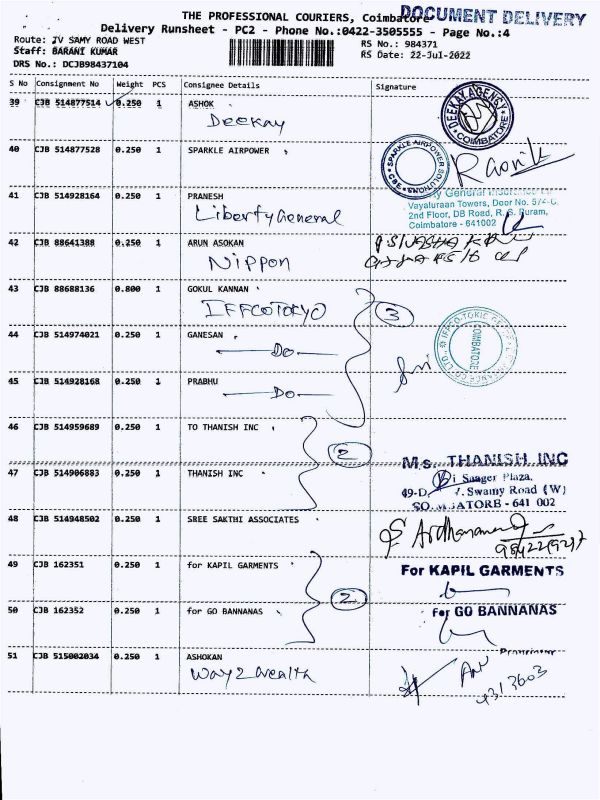 THE PROFESSIONAL COURIERS, Coimbatore
DOCUMENT DELIVERY
Delivery Runsheet - PC2 - Phone No.:0422-3505555 - Page No.:4
Route: JV SAMY ROAD WEST
RS No.: 984371
Staff: BARANI KUMAR
RS Date: 22-Jul-2022
DRS No.: DCJB98437104
S No Consignment No Weight PCS Consignee Details Signature
39 CJB 514877514 0.250 1 ASHOK
Deekay
DEEKAY AGENCY
COIMBATORE
40 CJB 514877528 0.250 1 SPARKLE AIRPOWER
SPARKLE AIRPOWER SOLUTIONS
CBE
41 CJB 514928164 0.250 1 PRANESH
Liberty General
General
Vayaluraan Towers, Door No.
2nd Floor, DB Road, R. S. Puram,
Coimbatore - 641002
42 CJB 88641388 0.250 1 ARUN ASOKAN
Nippon
43 CJB 88688136 0.800 1 GOKUL KANNAN
IFFCOTOKYO
3
44 CJB 514974021 0.250 1 GANESAN
Do
IFFCO-TOKIO GENERAL INSURANCE CO LTD
COIMBATORE
45 CJB 514928168 0.250 1 PRABHU
Do
46 CJB 514959689 0.250 1 TO THANISH INC
2
Ms. THANISH INC
47 CJB 514906883 0.250 1 THANISH INC
Saager Plaza,
49-D Swamy Road (W)
641 002
48 CJB 514948502 0.250 1 SREE SAKTHI ASSOCIATES
49 CJB 162351 0.250 1 for KAPIL GARMENTS
For KAPIL GARMENTS
2
50 CJB 162352 0.250 1 for GO BANNANAS
For GO BANNANAS
51 CJB 515002034 0.250 1 ASHOKAN
way2wealth